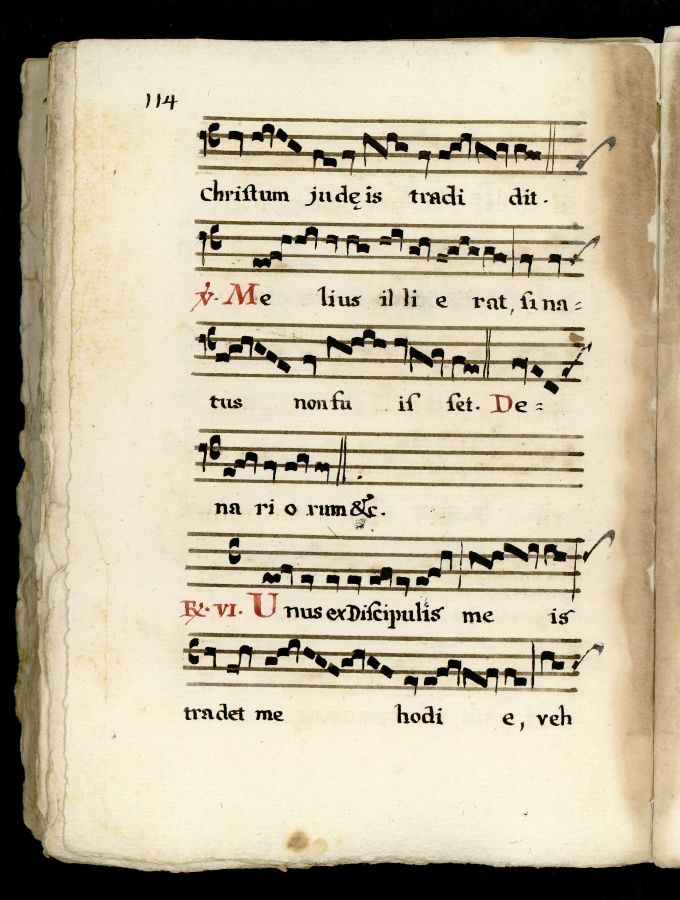 114
Christum judęis tradi dit.
℣. Me lius il li e rat, si na=
tus non fu is set. De=
na ri o rum &c.
℟. VI. Unus ex Discipulis me is
tradet me hodi e, veh